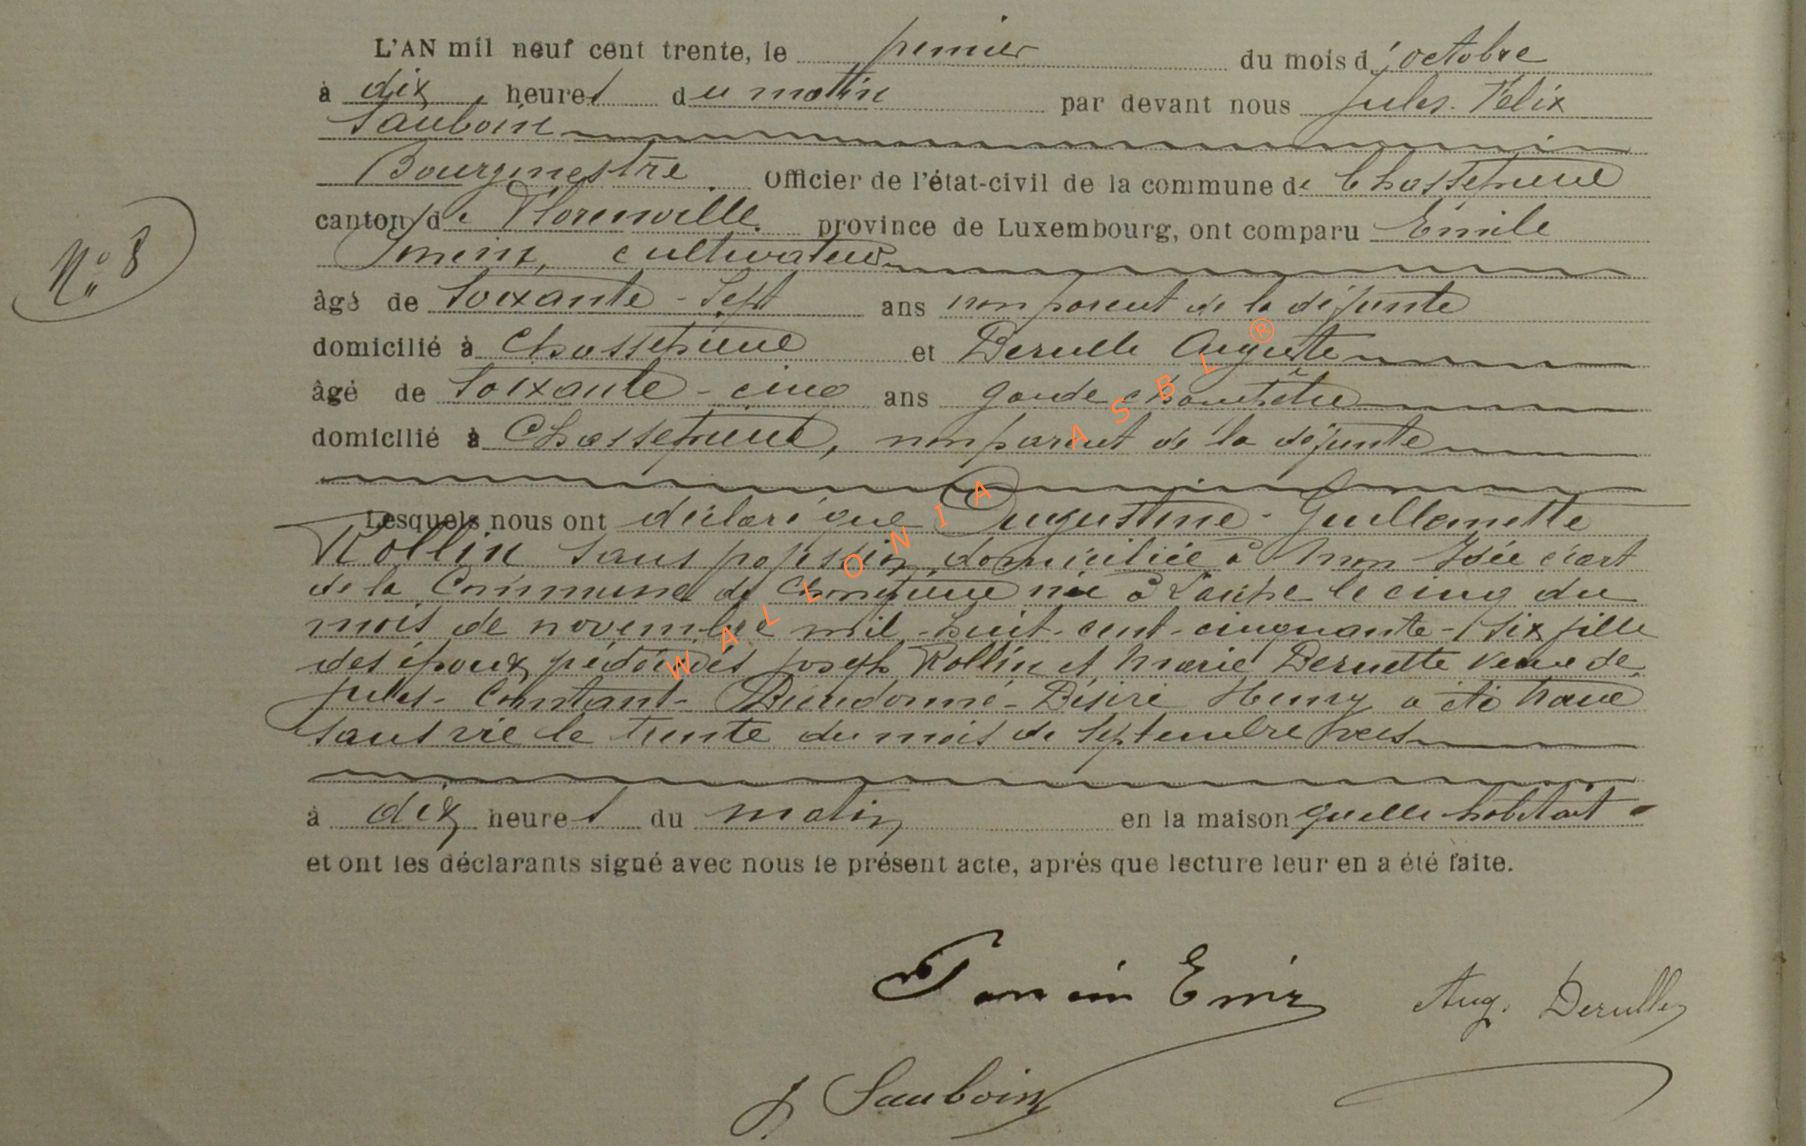 L'AN mil neuf cent trente, le premier du mois d'octobre
à dix heures du matin par devant nous Jules Félix
Sauboin
Bourgmestre. Officier de l'état-civil de la commune de Chassepierre
canton de Florenville. province de Luxembourg, ont comparu Emile
cultivateur
âgé de soixante-sept ans non parent de la défunte
domicilié à Chassepierre et Derulle Auguste
âgé de soixante-cinq ans garde champêtre
domicilié à Chassepierre, non parent de la défunte
Lesquels nous ont déclaré que Augustine-Guillemette
Rollin sans profession domiciliée à Mon Idée écart
de la Commune de Chassepierre née à Laiche le cinq du
mois de novembre mil-huit-cent-cinquante-six fille
des époux prédécédés Joseph Rollin et Marie veuve de
Jules-Constant-Dieudonné-Désiré Henry a été trouvé
sans vie le trente du mois de septembre vers
à dix heures du matin en la maison quelle habitait
et ont les déclarants signé avec nous le présent acte, après que lecture leur en a été faite.
No 8
Aug. Derulle
J Sauboin
WALLONIA ASBL ®